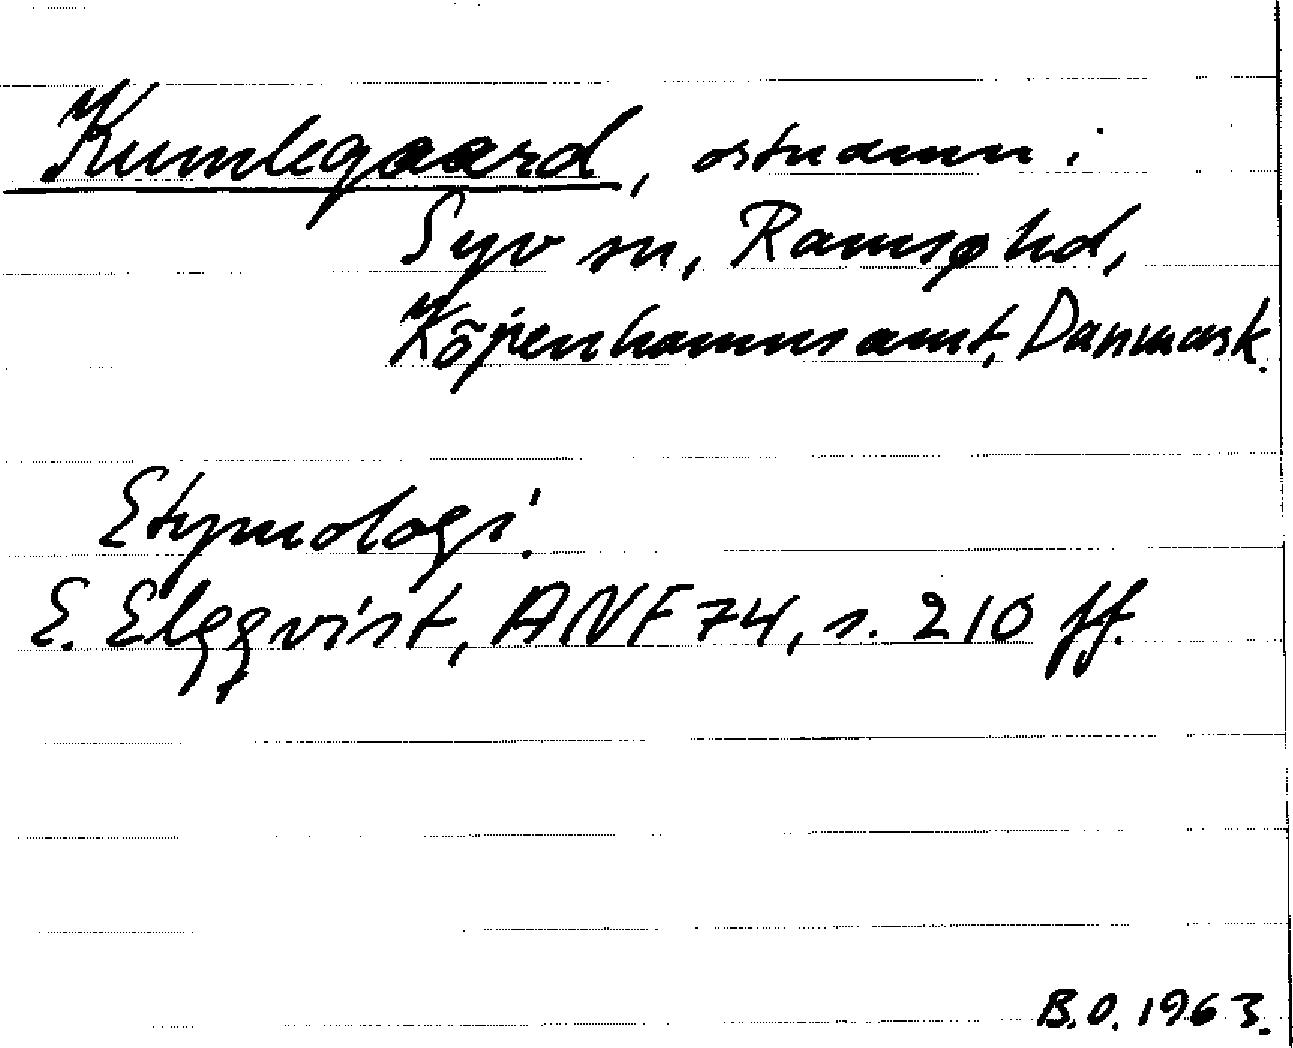 Kumlegaard, ortnamn i
Syv sn, Ramsø hd,
Köpenhamns amt, Danmark.
Etymologi.
E. Elgqvist, ANF 74, s. 210 ff.
B.O. 1963.